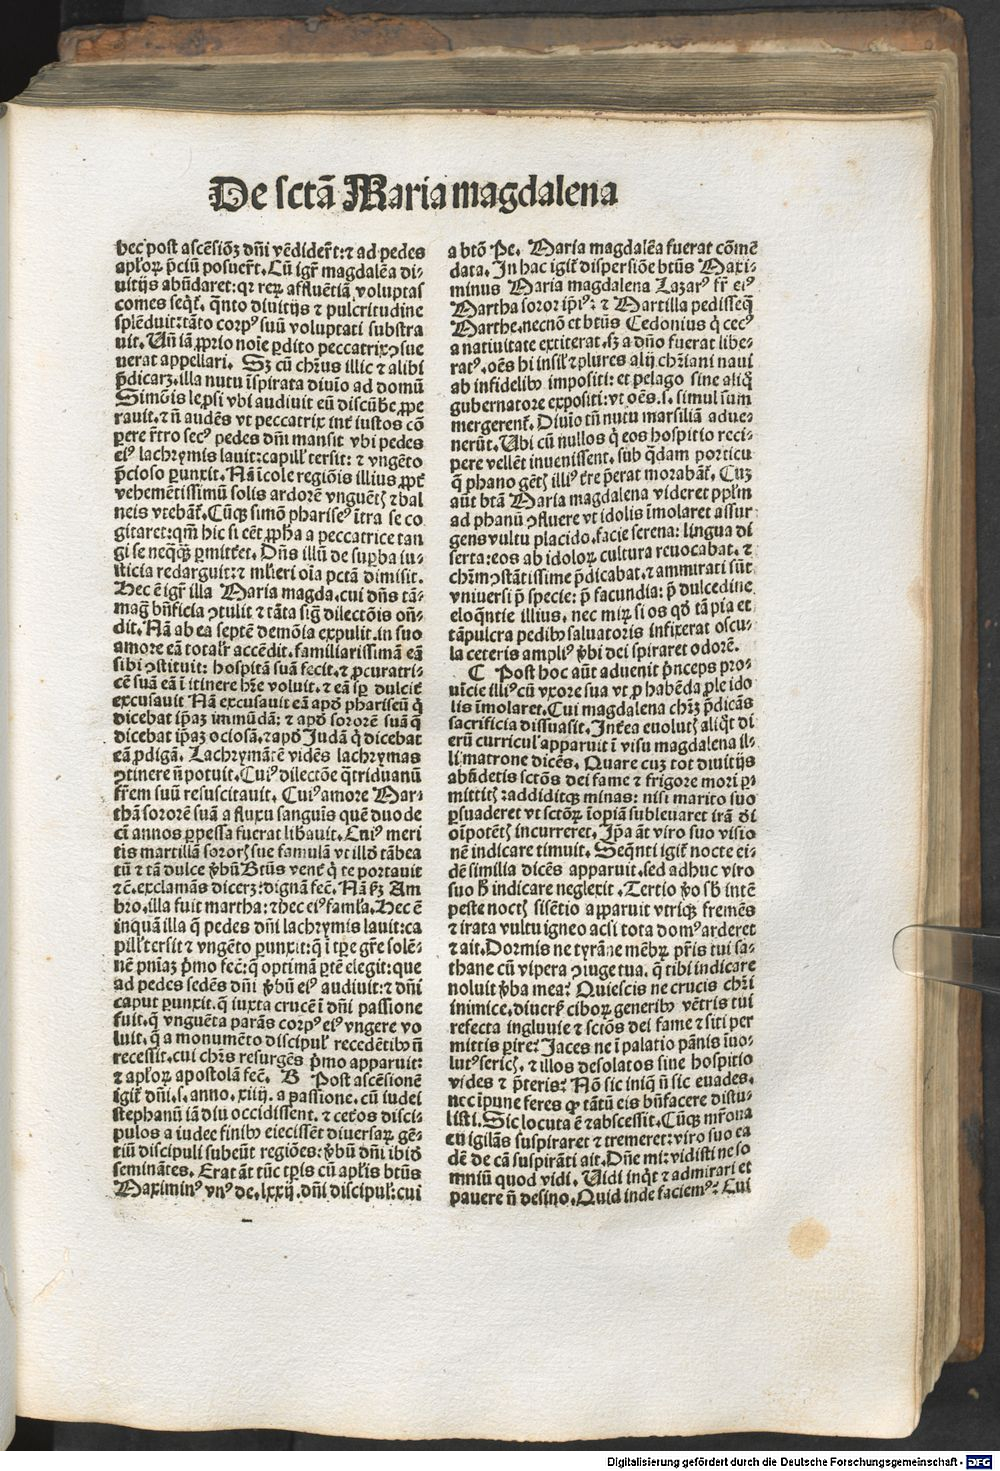 De sctā Maria magdalena
hec post ascēsiōꝫ dn̄i vēdider̄t: ⁊ ad pedes
apl̄oꝝ p̄ciū posuer̄t. Cū igr̄ magdalēa di-
uitijs abūdaret: qꝛ reꝝ affluētiā voluptas
comes seqt̄. qn̄to diuitijs ⁊ pulcritudine
splēduit: tāto corpꝰ suū voluptati substra
uit. Un̄ iā ꝓprio noīe ꝑdito peccatrix ꝯsue
uerat appellari. Sꝫ cū chr̄us illic ⁊ alibi
p̄dicarꝫ. illa nutu īspirata diuīo ad domū
Simōis leprosi vbi audiuit eū discūbe. ꝓpe
rauit. ⁊ n̄ audēs vt peccatrix int̄ iustos cō
pere r̄tro secꝰ pedes dn̄i mansit vbi pedes
eiꝰ lachrymis lauit: capill̄ tersit: ⁊ vngēto
p̄cioso ꝑunxit. Nā īcole regiōis illius ꝓpt̄
vehemētissimū solis ardorē vnguētꝭ ⁊ bal
neis vtebāt̄. Cūqꝫ simō phariseꝰ īt̄ra se co
gitaret: qm̄ hic si eēt ꝓpha a peccatrice tan
gi se neqꝙ̄ ꝑmitt̄et. Dn̄s illū de suꝑba iu-
sticia redarguit: ⁊ ml̄ieri oīa pctā dimisit.
Hec ē igr̄ illa Maria magda. cui dn̄s tā-
maḡ bn̄ficia ꝯtulit ⁊ tāta siḡ dilectōis on̄-
dit. Nā ab ea septē demōia expulit. in suo
amore eā totalr̄ accēdit. familiarissimā eā
sibi ꝯstituit: hospitā suā fecit. ⁊ ꝓcuratri-
cē suā eā ī itinere hr̄e voluit. ⁊ eā sꝑ dulcit̄
excusauit Nā excusauit eā apđ phariseū q̄
dicebat ip̄aꝫ immūdā: ⁊ apđ sororē suā q̄
dicebat ip̄aꝫ ociosā. ⁊ apđ Judā q̇ dicebat
eā ꝓdigā. Lachrymātē vidēs lachrymas
ꝯtinere n̄ potuit. Cuiꝰ dilectōe q̄triduanū
fr̄em suū resuscitauit. Cuiꝰ amore Mar-
thā sororē suā a fluxu sanguīs quē duode
cī annos ꝑpessa fuerat lib̄auit. Cuiꝰ meri
tis martillā sororꝭ sue famulā vt illđ tābea
tū ⁊ tā dulce v̄bū Btūs vent̄ q̇ te portauit
⁊ c̄. exclamās dicerꝫ: dignā fec̄. Nā ẜꝫ Am
bro. illa fuit martha: ⁊ hec eiꝰ faml̄a. Hec ē
inquā illa q̄ pedes dn̄i lachrymis lauit: ca
pill̄ tersit ⁊ vngēto ꝑunxit: q̄ ī tꝑe gr̄e solē-
nē pn̄iaꝫ ṗmo fec̄: q̄ optimā ꝑtē elegit: que
ad pedes sedēs dn̄i v̄bū eiꝰ audiuit: ⁊ dn̄i
caput ꝑunxit. q̄ iuxta crucē ī dn̄i passione
fuit. q̄ vnguēta parās corpꝰ eiꝰ vngere vo
luit. q̄ a monumēto discipul̄ recedētibꝰ n̄
recessit. cui chr̄s resurgēs ṗmo apparuit:
⁊ apl̄oꝝ apostolā fec̄. B Post ascēsionē
igit̄ dn̄i. s. anno. xiiij. a passione. cū iudei
stephanū iā diu occidissent. ⁊ cet̄os disci-
pulos a iudee finibꝰ eiecissēt diuersaꝝ gē-
tiū discipuli subeūt regiōes: v̄bū dn̄i ibiđ
semināntes. Erat āt tūc tꝑis cū apl̄is btūs
Maximinꝰ vnꝰ de. lxxij. dn̄i discipul̄: cui
a btō Pe. Maria magdalēa fuerat cōmē
data. In hac igit̄ dispersiōe btūs Maxi-
minus Maria magdalena Lazarꝰ fr̄ eiꝰ
Martha soror ip̄iꝰ: ⁊ Martilla pedisseq̄
Marthe. necnō et btūs Cedonius q̇ cecꝰ
a natiuitate extiterat. sꝫ a dn̄o fuerat libe-
ratꝰ. oēs hi insil̄ ⁊ plures alij chr̄iani naui
ab infidelibꝰ impositi: et pelago sine aliq̇
gubernatore expositi: vt oēs. s. simul sum̄
mergerent̄. Diuīo tn̄ nutu marsiliā adue-
nerūt. Ubi cū nullos q̇ eos hospitio reci-
pere vellēt inuenissent. sub q̇dam porticu
q̄ phano gētꝭ illiꝰ t̄re p̄erat morabāt̄. Cuꝫ
aūt btā Maria magdalena videret ppl̄m
ad phanū ꝯfluere vt idolis īmolaret assur
gens vultu placido. facie serena: lingua di
serta: eos ab idoloꝝ cultura reuocabat. ⁊
chr̄m ꝯstātissime p̄dicabat. ⁊ ammirati sūt
vniuersi p̄ specie: p̄ facundia: p̄ dulcedine
eloqn̄tie illius. nec mirꝝ si os qđ tā pia et
tāpulcra pedibꝰ saluatoris infixerat oscu-
la ceteris ampliꝰ v̄bi dei spiraret odorē.
C Post hoc aūt aduenit ṗnceps pro-
uīcie illiꝰ cū vxore sua vt ꝓ habēda ꝓle ido
lis īmolaret. Cui magdalena chr̄ꝫ p̄dicās
sacrificia dissuasit. Int̄ea euolutꝭ aliqt̄ di
erū curricul̄ apparuit ī visu magdalena il-
li matrone dicēs. Quare cuꝫ tot diuitijs
abūdetis sctōs dei fame ⁊ frigore mori ꝑ-
mittitꝭ: addiditqꝫ minas: nisi marito suo
ꝑsuaderet vt sctōꝝ īopiā subleuaret irā di
oīpotētꝭ incurreret. Ip̄a āt viro suo visio
nē indicare timuit. Seqn̄ti igit̄ nocte ei-
dē similia dicēs apparuit. sed adhuc viro
suo h̄ indicare neglexit. Tertio v̄o sb̄ intē
peste noctꝭ silētio apparuit vtriqꝫ fremēs
⁊ irata vultu igneo acsi tota domꝰ arderet
⁊ ait. Dormis ne tyrāne mēbꝝ pr̄is tui sa-
thane cū vipera ꝯiuge tua. q̄ tibi indicare
noluit v̄ba mea? Quiescis ne crucis chr̄i
inimice. diuers̄ ciboꝝ generibꝰ vētris tui
refecta ingluuie ⁊ sctōs dei fame ⁊ siti per
mittis ꝑire? Jaces ne ī palatio pānis īuo-
lutꝰ sericꝭ. ⁊ illos desolatos sine hospitio
vides ⁊ p̄teris? Nō sic iniq̄ n̄ sic euades.
nec īpune feres ꝙ tātū eis bn̄facere distu-
listi. Sic locuta ē ⁊ abscessit. Cūqꝫ mr̄ona
euigilās suspiraret ⁊ tremeret: viro suo ea
dē de cā suspirāti ait. Dn̄e mi: vidisti ne so
mniū quod vidi. Uidi inqt̄ ⁊ admirari et
pauere n̄ desino. Quid inde faciemꝰ? Cui
Digitalisierung gefördert durch die Deutsche Forschungsgemeinschaft - DFG